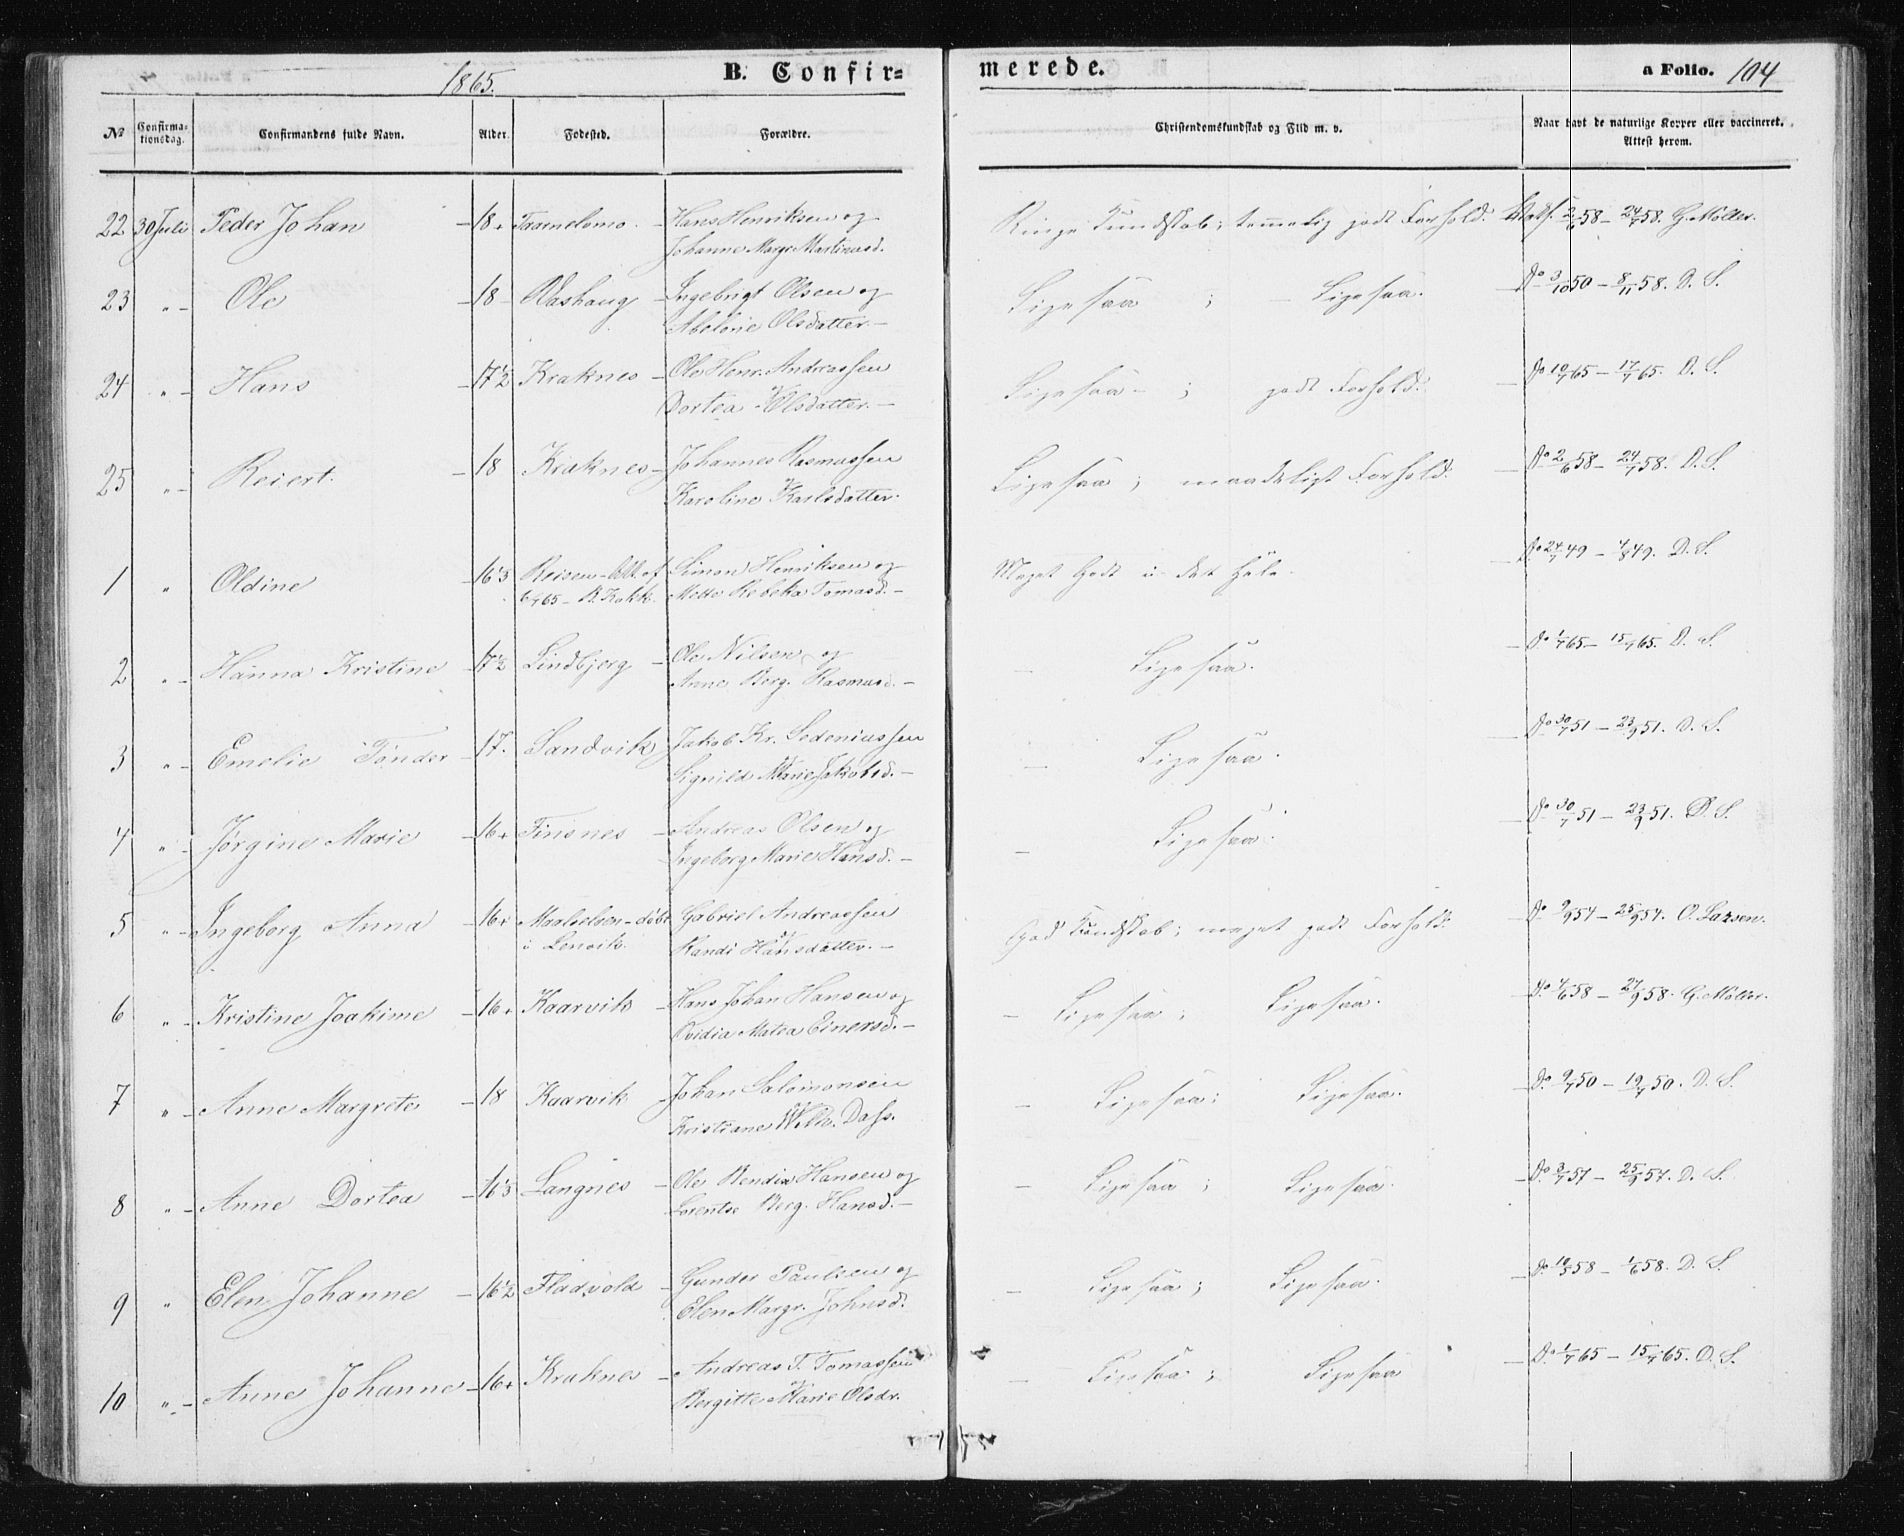 1865. B. Confir= merede. a Folio. 104
№ Confirma-tionsdag. Confirmandens fulde Navn. Alder. Fødested. Forældre. Christendomskundskab og Flid m. v. Naar havt de naturlige Kopper eller vaccineret. Attest herom.
22 30 Juli Peder Johan - 18+ Hans Henriksen og Ringe Kundskab; temmelig godt Forhold. 2/6 58 - 24/7 58. G. Møller.
Johanne Margr. Martinusd.
23 " - Ole - 18 - Vashaug - Ingebrigt Olsen og Ligesaa ; Ligesaa. Do 3/10 50 - 8/11 58. D. S.
Abelone Olsdatter. -
24 " - Hans - 17½ Kraknes - Ole Henr. Andreassen Ligesaa - ; godt Forhold. - Do 10/7 65 - 17/7 65. D. S.
Dortea Olsdatter. -
25 " - Reiert. - 18 Kraknes - Johannes Rasmussen Ligesaa ; maadeligt Forhold. - Do 2/6 58 - 24/7 58. D. S.
Karoline Karlsdatter.
1 " Oldine - 16 Reisen - Att. af Simon Henriksen og Meget Godt i det Hele. - Do 24/7 49 - 4/8 49. D. S.
Mette Rebeka Tomasd. -
2 " - Hanna Kristine - 17½ Lindbjerg - Ole Nilsen og - Ligesaa. - Do 1/7 65 - 15/7 65. D. S.
Anne Berg. Rasmusd. -
3 " - Emelie Tønder - 17. Sandvik Jakob Kr. Sedeniussen - Ligesaa. - Do 30/7 51 - 23/9 51. D. S.
Signild Marie Jakobsd. -
4 " - Jørgine Marie - 16+ Finsnes - Andreas Olsen og - Ligesaa. - Do 30/7 51 - 23/9 51. D. S.
Ingeborg Marie Hansd. -
5 " - Ingeborg Anna - 16+ Maalselven - døbt Gabriel Andreassen God Kundskab; meget godt Forhold. Do 9/9 54 - 25/9 54. O. Larsen.
i Lenvik. Randi Hansdatter. -
6 " - Kristine Joakime - 16+ Kaarvik - Hans Johan Hansen og - Ligesaa ; Ligesaa. - Do 4/6 58 - 27/9 58. G. Møller.
Ovidia Matea Einersd. -
7 " - Anne Margrete - 18 Kaarvik Johan Salomonsen - Ligesaa ; Ligesaa. - Do 9/7 50 - 19/7 50. D. S.
Kristiane Wilh. Dass.
8 " - Anne Dortea - 16 Langnes - Ole Bendix Hansen og - Ligesaa ; Ligesaa. - Do 3/7 57 - 25/9 57. D. S.
Lorentse Berg. Hansd. -
9 " Elen Johanne - 16½ Fladvold - Gunder Paulsen og - Ligesaa ; Ligesaa. - Do 10/5 58 - 1/6 58. D. S.
Elen Margr. Johnsd.
10 " - Anne Johanne - 16+ Kraknes - Andreas T. Tomassen - Ligesaa ; Ligesaa - Do 1/7 65 - 15/7 65. D. S.
Bergitte Marie Olsdr.